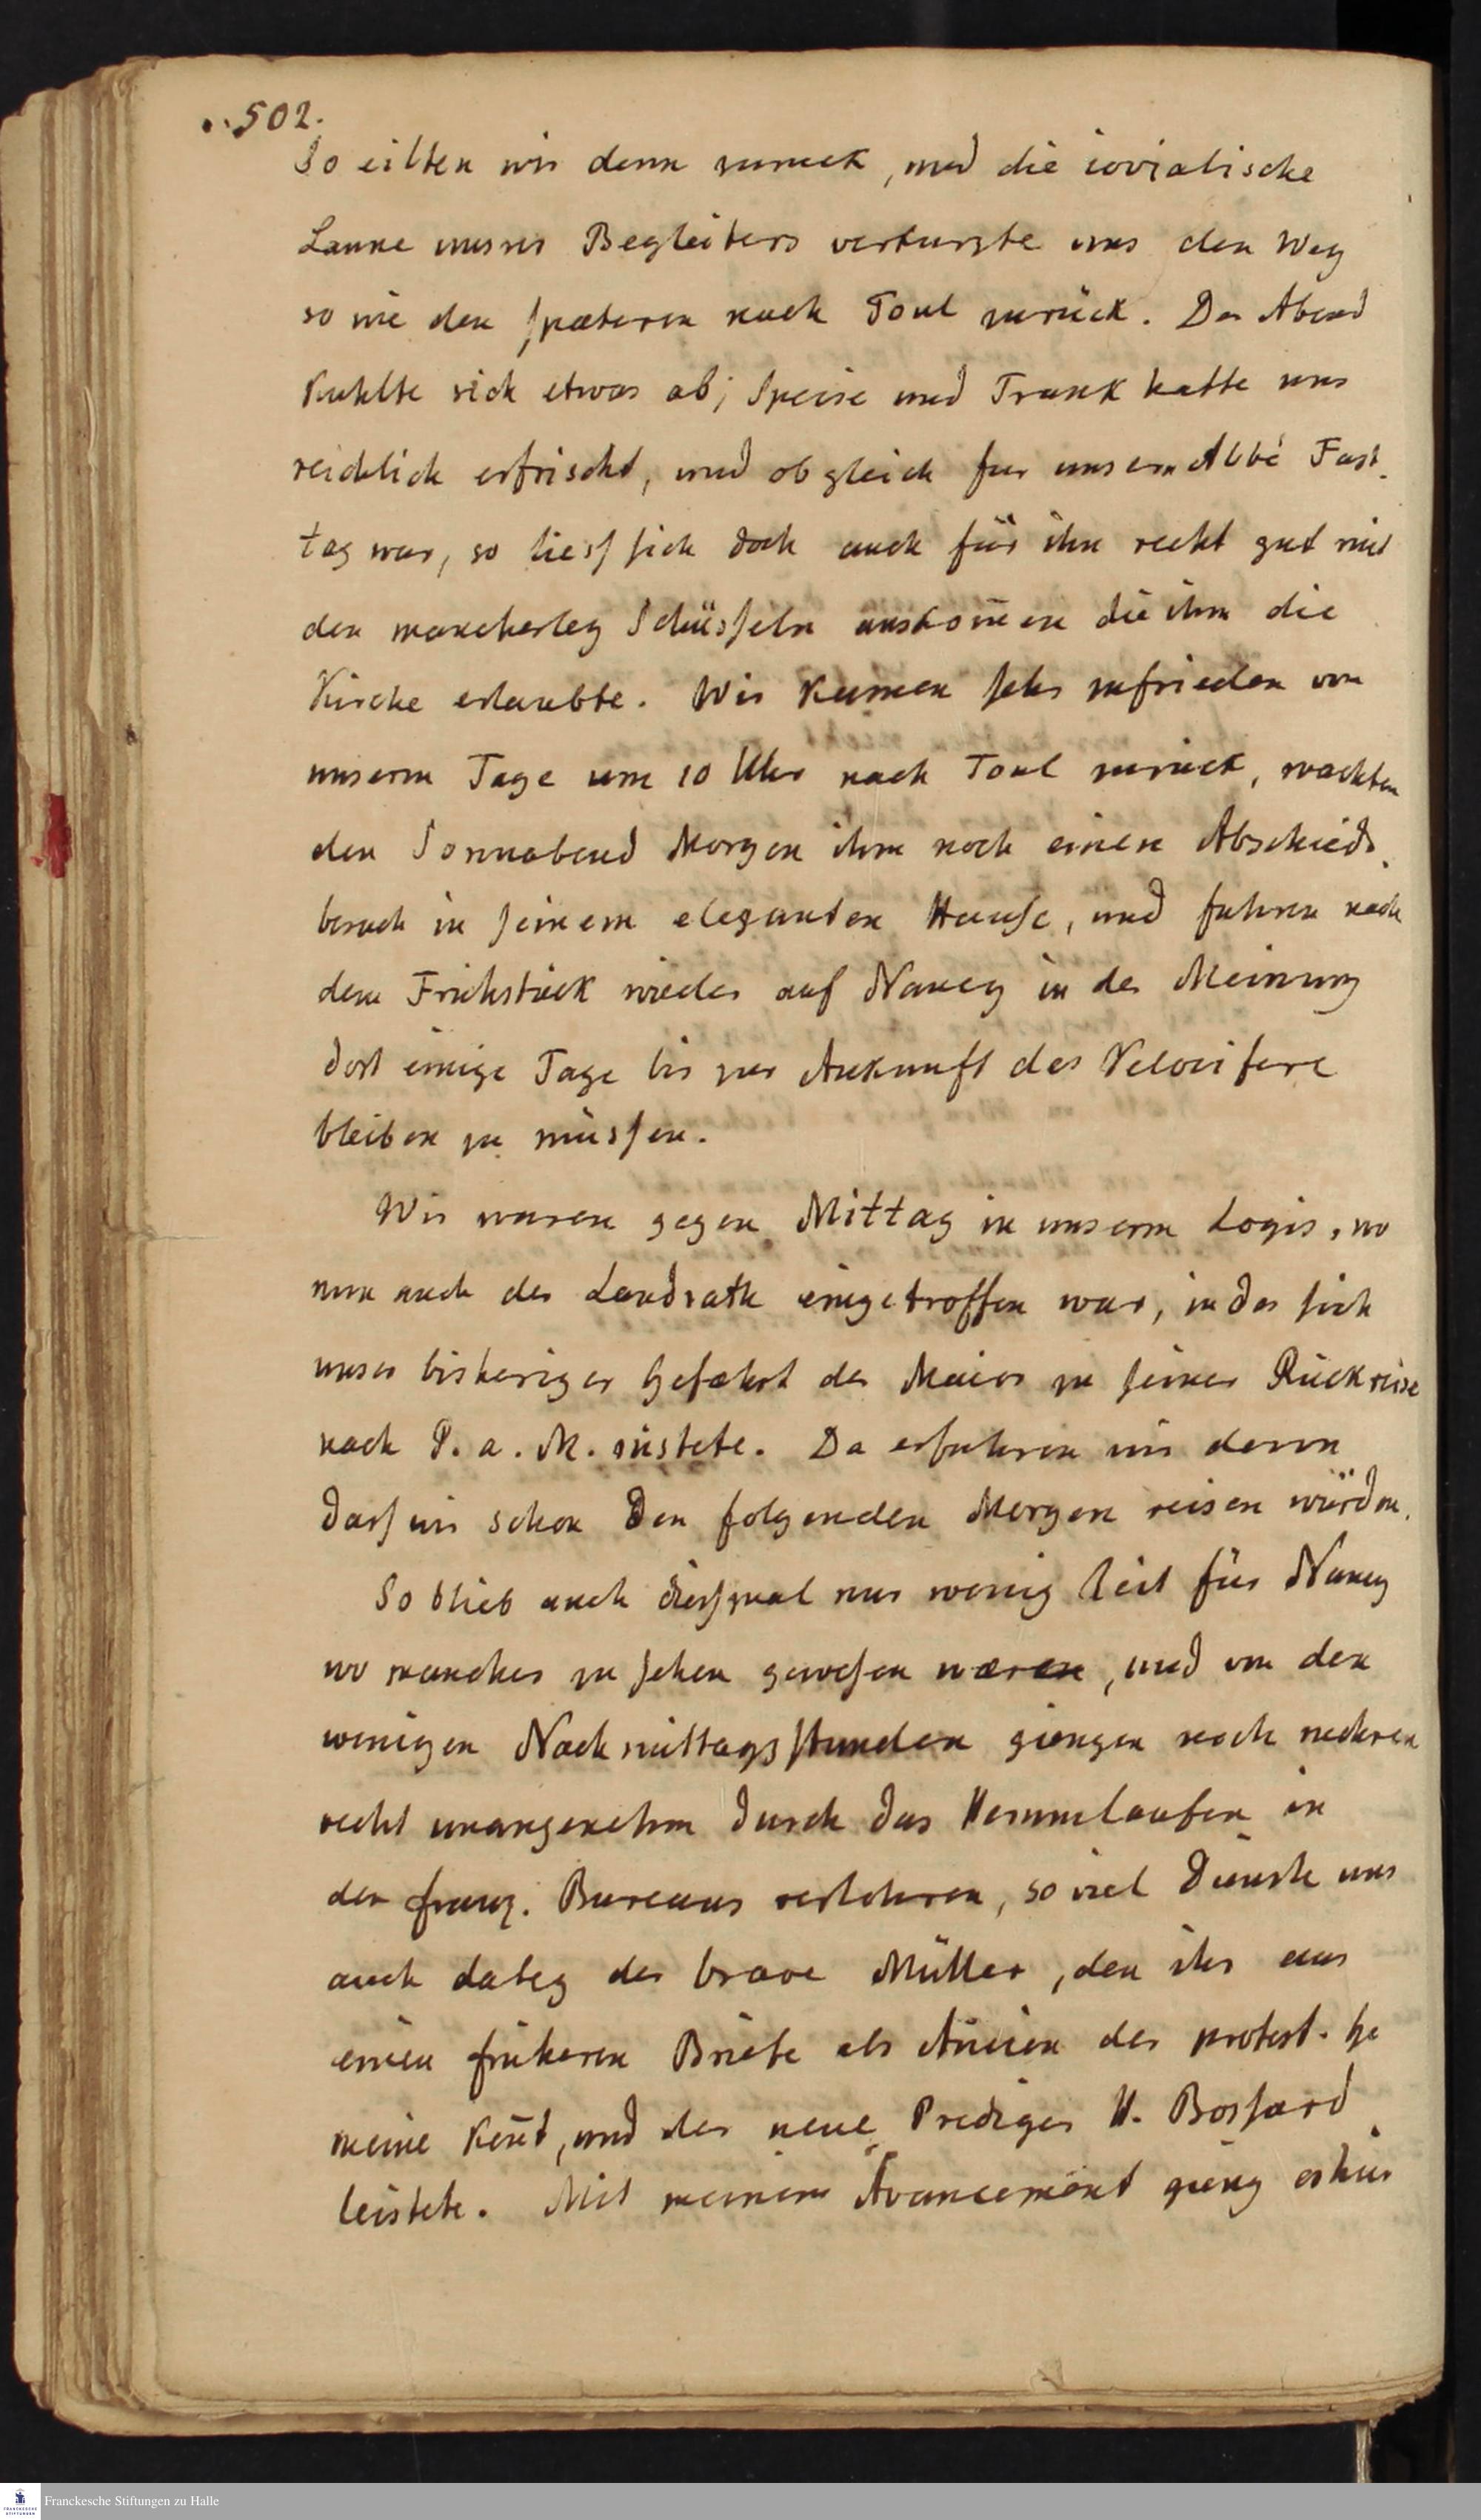 502.
So eilten wir denn zurück, und die iovialische
Laune unsres Begleiters verkurzte uns den Weg
so wie den spæteren nach Toul zurück. Der Abend
kuhlte sich etwas ab; Speise und Trank hatte uns
reichlich erfrischt, und obgleich fur unsern Abbé Fast-
tag war, so liess sich doch auch für ihn recht gut mit
den mancherley Schüsseln auskom̄en die ihm die
Kirche erlaubte. Wir kamen sehr zufrieden von
unserm Tage um 10 Uhr nach Toul zurück, machten
den Sonnabend Morgen ihm noch einen Abschieds-
besuch in seinem eleganten Hause, und fuhren nach
dem Frühstück wieder auf Nancy in der Meinung
dort einige Tage bis zur Ankunft des Velocifere
bleiben zu müssen.
Wir waren gegen Mittag in unserm Logis, wo
nun auch der Landrath eingetroffen war, indes sich
unser bisheriger Gefæhrt der Maior zu seiner Rückreise
nach P. a. M. rüstete. Da erfuhren wir denn
dass wir schon den folgenden Morgen reisen würden.
So blieb auch diessmal nur wenig Zeit für Nancy
wo manches zu sehen gewesen wæren, und von den
wenigen Nachmittagsstunden giengen noch mehrere
recht unangenehm durch das Herumlaufen in
den franz. Bureaus verlohren, so viel Dienste uns
auch dabey der brave Müller, den ihr aus
einen früheren Briefe als Ancien der protest. Ge
meine ken̄t, und der neue Prediger H. Bossard
leistete. Mit meinem Avancement gieng es hier